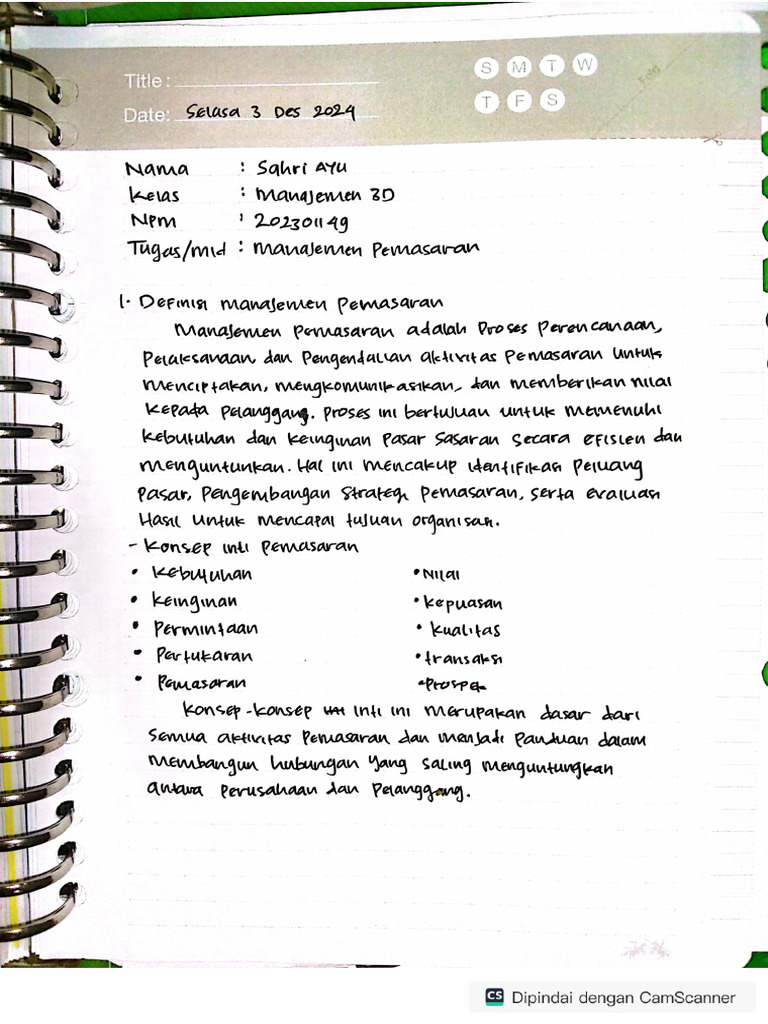 Title :
S M T W
Fold
Date: Selasa 3 Des 2024
T F S
Nama : Sahri AYU
Kelas : Manajemen 3D
NPM : 202301149
Tugas/mid : Manajemen Pemasaran
1. Definisi manajemen Pemasaran
Manajemen Pemasaran adalah Proses Perencanaan,
Pelaksanaan, dan Pengendalian aktivitas Pemasaran untuk
menciptakan, mengkomunikasikan, dan memberikan nilai
kepada Pelanggang. Proses ini bertujuan untuk memenuhi
kebutuhan dan keinginan Pasar Sasaran Secara efisien dan
menguntunkan. Hal ini mencakup identifikasi Peluang
Pasar, Pengembangan Strategi Pemasaran, serta evaluasi
Hasil untuk mencapai tujuan organisasi.
- Konsep inti Pemasaran
• Kebutuhan • Nilai
• Keinginan • Kepuasan
• Permintaan • Kualitas
• Pertukaran • transaksi
• Pemasaran • Prospek
Konsep-konsep inti ini merupakan dasar dari
Semua aktivitas Pemasaran dan menjadi Panduan dalam
Membangun hubungan yang saling menguntungkan
antara Perusahaan dan Pelanggang.
CS Dipindai dengan CamScanner